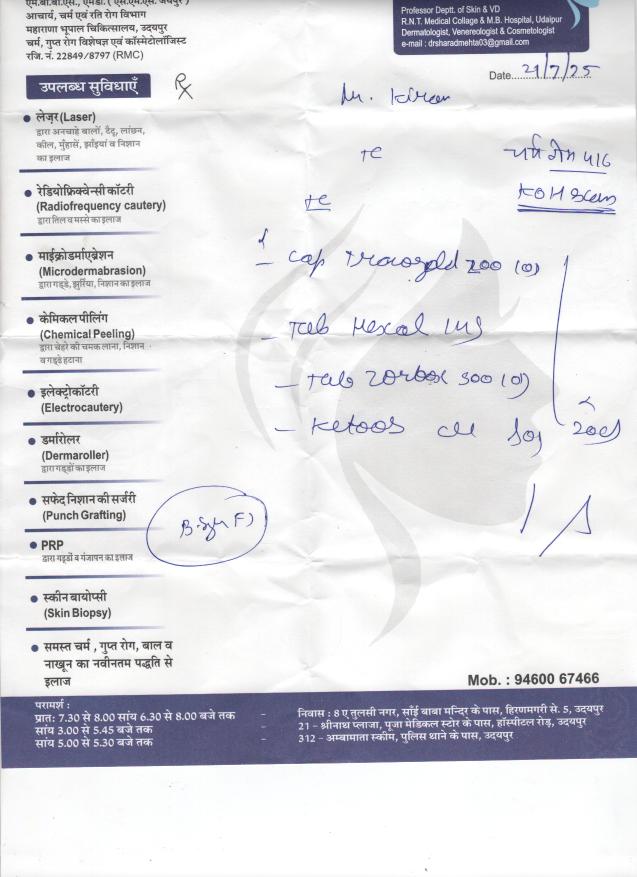 एम.बी.बी.एस., एमडी. ( एस.एम.एस. जयपुर )
आचार्य, चर्म एवं रति रोग विभाग
महाराणा भूपाल चिकित्सालय, उदयपुर
चर्म, गुप्त रोग विशेषज्ञ एवं कॉस्मेटोलॉजिस्ट
रजि. नं. 22849/8797 (RMC)
Professor Deptt. of Skin & VD
R.N.T. Medical Collage & M.B. Hospital, Udaipur
Dermatologist, Venereologist & Cosmetologist
e-mail : drsharadmehta03@gmail.com
Date 21/7/25
उपलब्ध सुविधाएँ
Rx
Mr. Kiran
लेज़र (Laser)
द्वारा अनचाहे बालों, टैटू, लांछन,
कील, मुँहासें, झाँइयां व निशान
का इलाज
TC
रेडियोफ्रिक्वेन्सी कॉटरी
(Radiofrequency cautery)
द्वारा तिल व मस्से का इलाज
TC
KOH Scan
माईक्रोडर्माएब्रेशन
(Microdermabrasion)
द्वारा गड्डे, झुर्रिया, निशान का इलाज
Cap 200 (O)
केमिकल पीलिंग
(Chemical Peeling)
द्वारा चेहरे की चमक लाना, निशान
व गड्डे हटाना
Tab
इलेक्ट्रोकॉटरी
(Electrocautery)
- Tab 300 (O)
डर्मारोलर
(Dermaroller)
द्वारा गड्डों का इलाज
- Ketoos
सफेद निशान की सर्जरी
(Punch Grafting)
PRP
द्वारा गड्डों व गंजापन का इलाज
स्कीन बायोप्सी
(Skin Biopsy)
समस्त चर्म , गुप्त रोग, बाल व
नाखून का नवीनतम पद्धति से
इलाज
Mob. : 94600 67466
परामर्श :
प्रात: 7.30 से 8.00 सांय 6.30 से 8.00 बजे तक - निवास : 8 ए तुलसी नगर, सांई बाबा मन्दिर के पास, हिरणमगरी से. 5, उदयपुर
सांय 3.00 से 5.45 बजे तक - 21 - श्रीनाथ प्लाजा, पूजा मेडिकल स्टोर के पास, हॉस्पीटल रोड़, उदयपुर
सांय 5.00 से 5.30 बजे तक - 312 - अम्बामाता स्कीम, पुलिस थाने के पास, उदयपुर